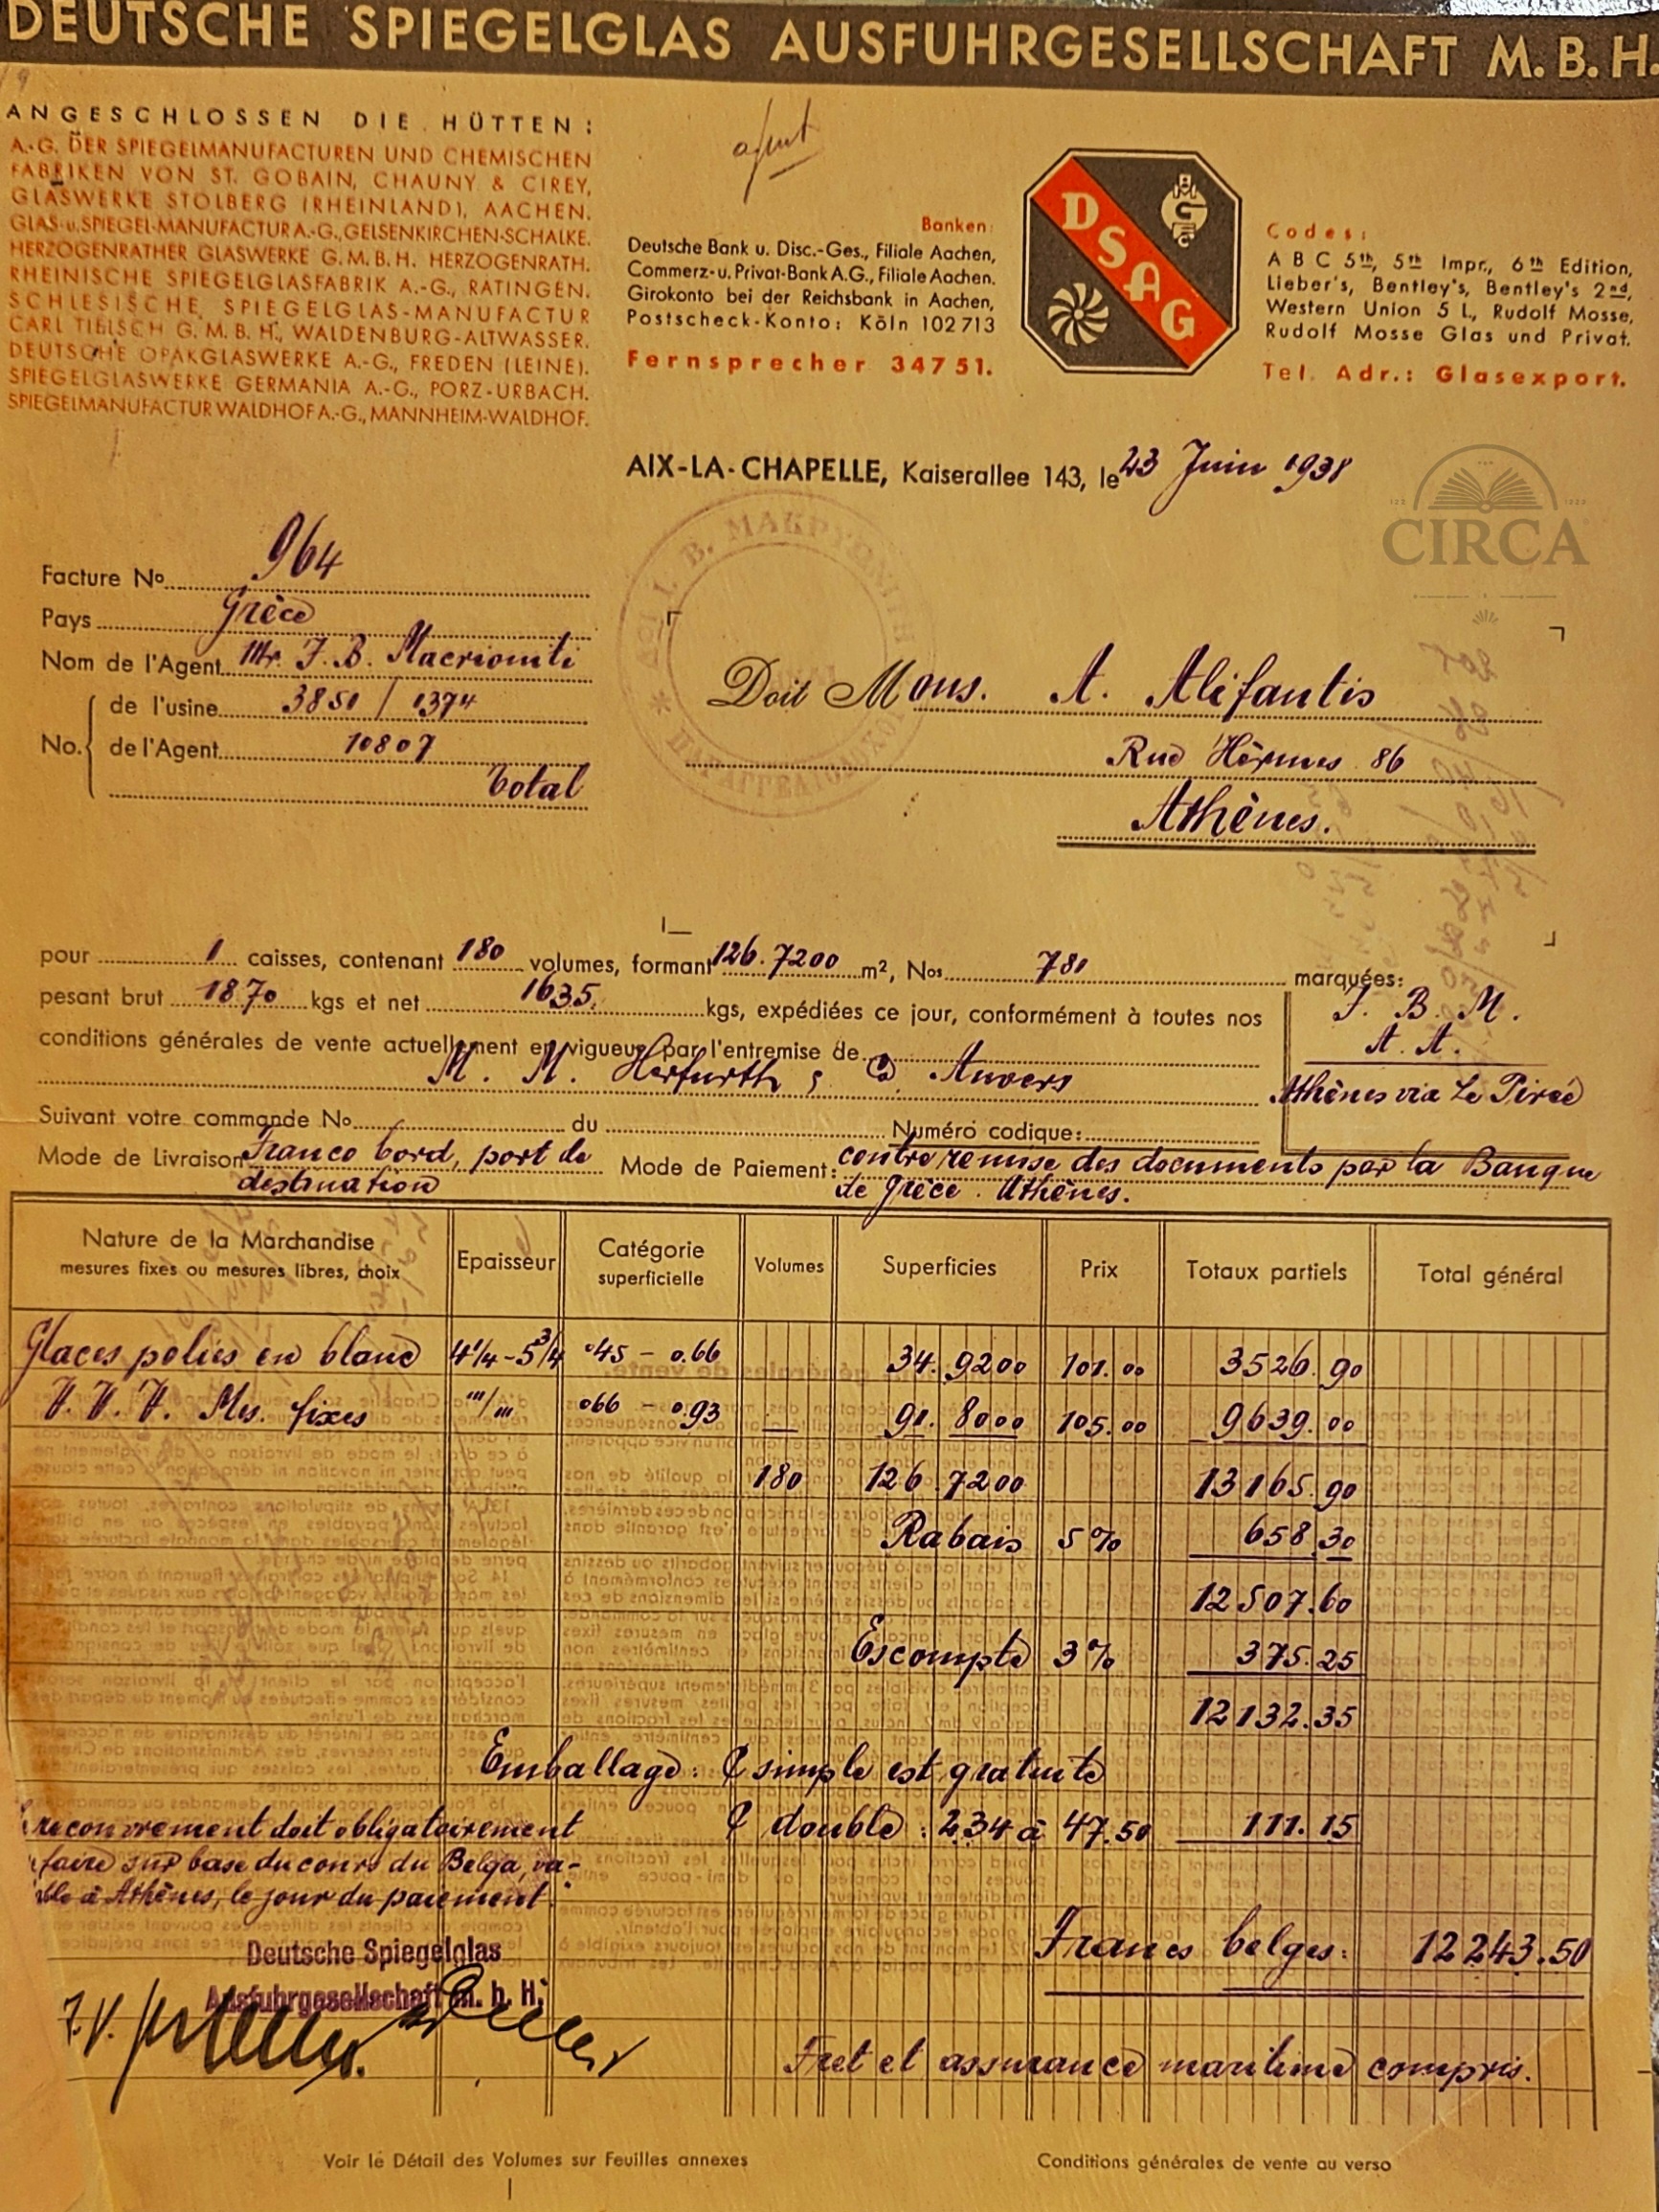 DEUTSCHE SPIEGELGLAS AUSFUHRGESELLSCHAFT M.B.H.
ANGESCHLOSSEN DIE HÜTTEN:
A.-G. DER SPIEGELMANUFACTUREN UND CHEMISCHEN
FABRIKEN VON ST. GOBAIN, CHAUNY & CIREY,
GLASWERKE STOLBERG (RHEINLAND), AACHEN.
GLAS-u.SPIEGEL-MANUFACTUR A.-G., GELSENKIRCHEN-SCHALKE.
HERZOGENRATHER GLASWERKE G.M.B.H. HERZOGENRATH.
RHEINISCHE SPIEGELGLASFABRIK A.-G., RATINGEN.
SCHLESISCHE SPIEGELGLAS-MANUFACTUR
CARL TIELSCH G.M.B.H., WALDENBURG-ALTWASSER.
DEUTSCHE OPAKGLASWERKE A.-G., FREDEN (LEINE).
SPIEGELGLASWERKE GERMANIA A.-G., PORZ-URBACH.
SPIEGELMANUFACTUR WALDHOF A.-G., MANNHEIM-WALDHOF.
Banken:
Deutsche Bank u. Disc.-Ges., Filiale Aachen,
Commerz- u. Privat-Bank A.G., Filiale Aachen.
Girokonto bei der Reichsbank in Aachen,
Postscheck-Konto: Köln 102713
Fernsprecher 34751.
DSAG
Codes:
A B C 5th, 5th Impr., 6th Edition,
Lieber's, Bentley's, Bentley's 2nd,
Western Union 5 L, Rudolf Mosse,
Rudolf Mosse Glas und Privat.
Tel. Adr.: Glasexport.
AIX-LA-CHAPELLE, Kaiserallee 143, le 23 Juin 1938
CIRCA
Facture No 964
Pays Grèce
Nom de l'Agent Mr. J. B. Macrioniti
No. de l'usine 3850 / 1374
de l'Agent 10807
total
Doit Mons. A. Alifantis
Rue Hèrmes 86
Athènes.
pour 1 caisses, contenant 180 volumes, formant 126.7200 m², Nos 781 marquées:
pesant brut 1870 kgs et net 1635. kgs, expédiées ce jour, conformément à toutes nos
conditions générales de vente actuellement en vigueur par l'entremise de
M. M. Herfurth & Co Anvers
J. B. M.
A. A.
Athènes via Le Pirée
Suivant votre commande No du Numéro codique:
Mode de Livraison Franco bord, port de destination
Mode de Paiement: contre remise des documents par la Banque de Grèce. Athènes.
Nature de la Marchandise mesures fixes ou mesures libres, choix Epaisseur Catégorie superficielle Volumes Superficies Prix Totaux partiels Total général
Glaces polies en blanc 4¼-5¾ 045 - 0.66 34.9200 101.00 3526.90
V. V. V. Mes. fixes "'/"' 066 - 0.93 91.8000 105.00 9639.00
180 126.7200 13165.90
Rabais 5% 658.30
12507.60
Escompte 3% 375.25
12132.35
Emballage: C simple est gratuite
C double: 2.34 à 47.50 111.15
recouvrement doit obligatoirement
faire sur base du cours du Belga, va-
able à Athènes, le jour du paiement.
Deutsche Spiegelglas
Ausfuhrgesellschaft m. b. H.
Francs belges: 12243.50
Fret et assurance maritime compris.
Voir le Détail des Volumes sur Feuilles annexes
Conditions générales de vente au verso